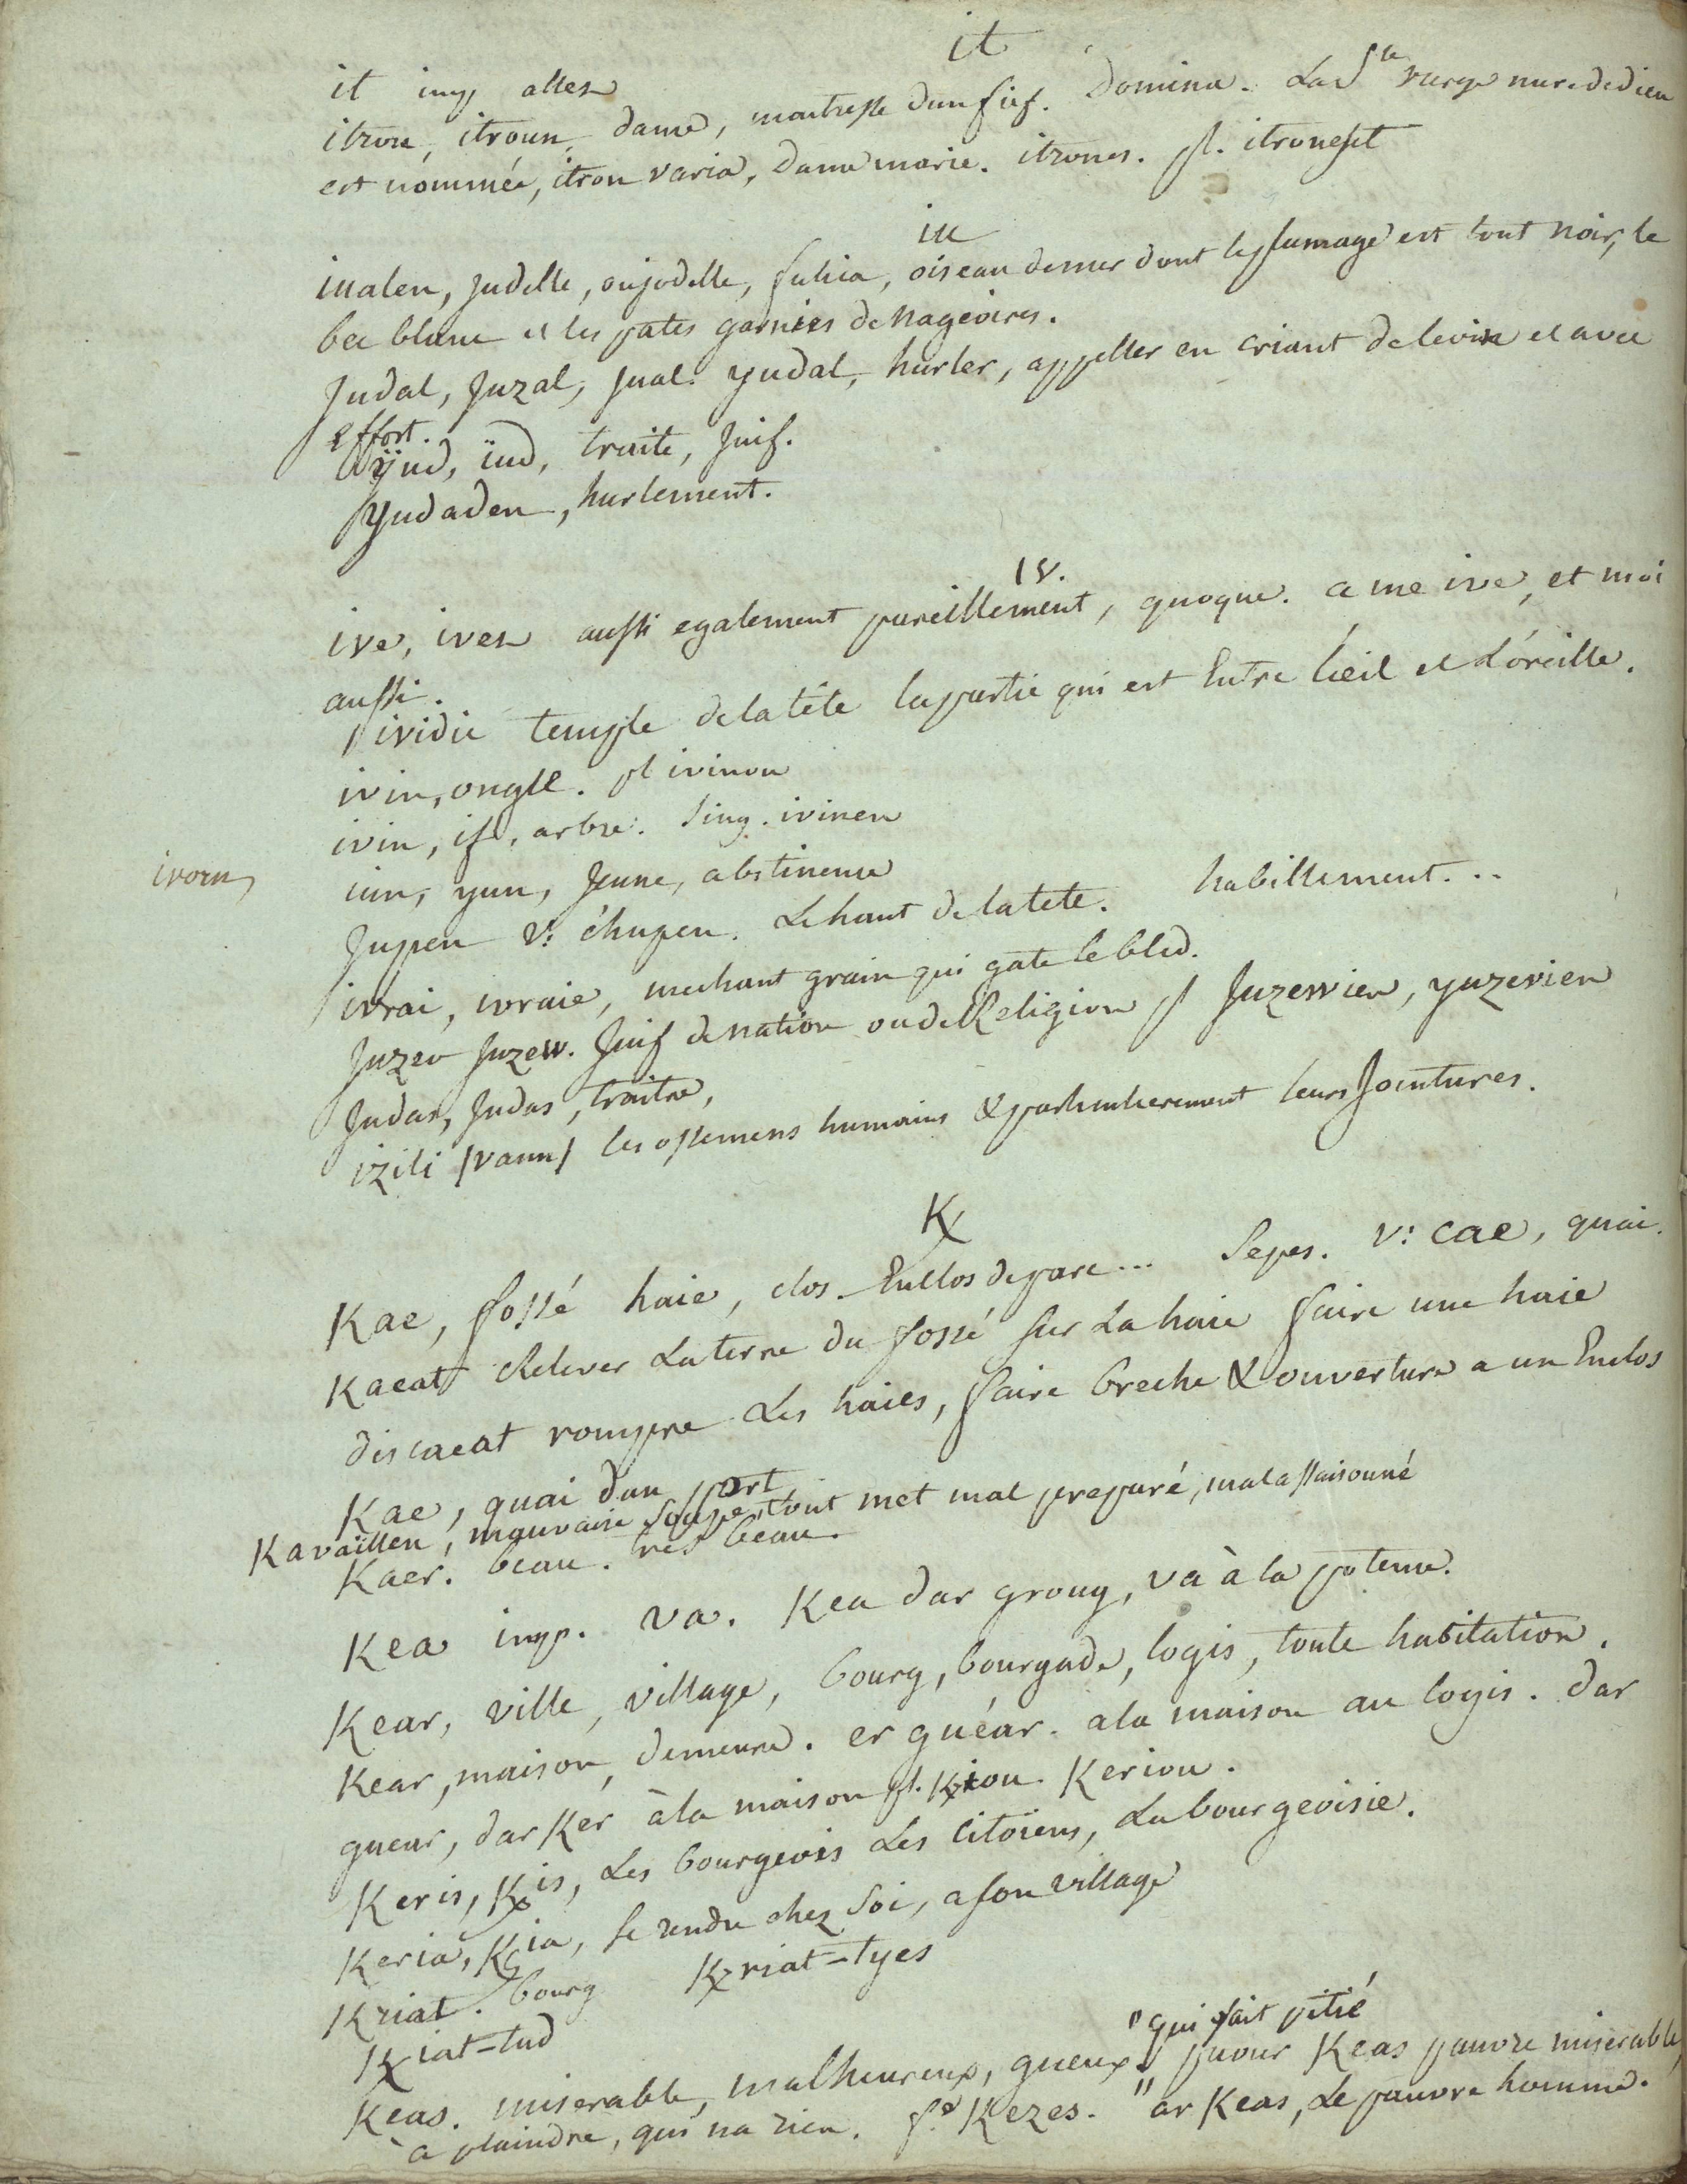 it
it imp allez
itron, itroun, dame, maitresse dun fief. Domina. La Ste vierge mere de dieu
est nommée, itron varia, dame marie. itrones. pl. itroneset
iu
iualen, judelle, ou jodelle, fulica, oiseau de mer dont le plumage est tout noir, le
bec blanc et les pates garnies de nageoires.
Judal, Juzal, jual. yudal, hurler, appeller en criant de loin et avec
effort.
yud, iud, traite, juif.
yudaden, hurlement.
iv.
ive, ivez aussi egalement pareillement, quoque. a me ive, et moi
aussi.
ividic temple de la tête la partie qui est Entre l'œil et L'oreille.
ivin, ongle. pl ivinou
ivin, if, arbre. sing. ivinen
ivorn,
iun, yun, Jeune, abstinence
Jupen v: chupen. Le haut de la tete. habillement...
ivrai, ivraie, mechant grain qui gate le bled.
Juzev Juzew. Juif de nation ou de Religion pl Juzewien, yuzevien
Judas, Judas, traitre,
izili /vann/ les ossemens humains & particulierement leurs Jointures.
K
Kae, fossé haie, clos. Enclos de parc... Sepes. v: cae, quai.
Kaeat Relever La terre du fossé sur La haie faire une haie
discaeat rompre Les haies, faire breche & ouverture a un Enclos
Kae, quai d'un port,
Kavaïllen, mauvaise soupe, tout met mal preparé, mal assaisonné
Kaer. beau. tres beau.
Kea imp. va. Kea dar groug, va à la potence.
Kear, ville, village, bourg, bourgade, logis, toute habitation.
Kear, maison, demeure. er guéar. a la maison au logis. dar
guear, dar Ker à la maison pl. Kiou. Keriou.
Keris, Kis, Les bourgeois Les Citoïens, La bourgeoisie.
Keria, Kia, se rendre chez soi, a son village
Kriat. bourg Kriat-tyes
Kiat-tud
"qui fait pitié
Keas. miserable, malheureux, gueux" paour Keas pauvre miserable,
à plaindre, qui na rien. f.e Kezes. "ar Keas, Le pauvre homme.